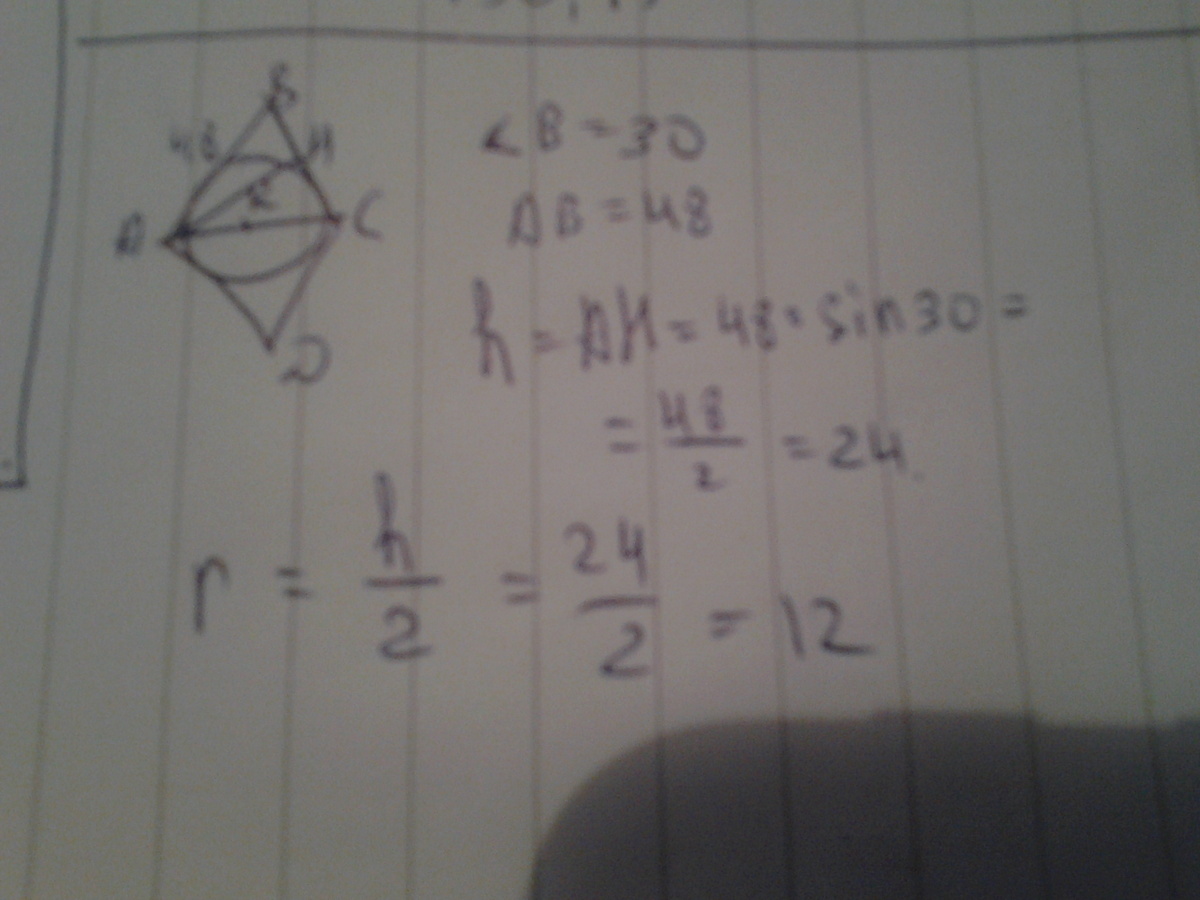 B
48
H
A
C
D
∠B = 30
AB = 48
h = AH = 48 · sin30 =
= 48/2 = 24.
r = h/2 = 24/2 = 12